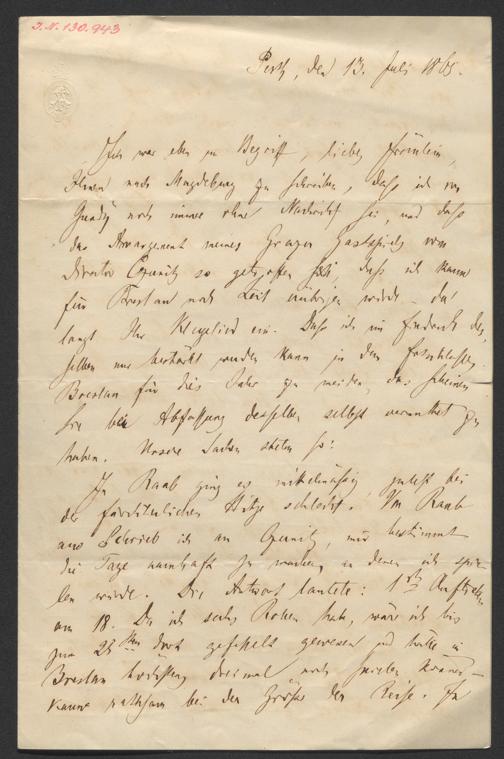 I.N. 130.943
Pesth, den 13. Juli 1865.
Ich war eben im Begriff, liebes Fräulein,
Ihnen nach Magdeburg zu schreiben, daß ich von
noch immer ohne Nachricht sei, und daß
das Arrangement meines Grazer Gastspiels von
Director Czernitz so getroffen sei, daß ich kaum
für Breslau noch Zeit würde – da
langt Ihr Klagelied ein. Daß ich im Eindruck des-
selben nur bestärkt werden kann in dem Entschlusse,
Breslau für dies Jahr zu meiden, das scheinen
Sie bei Abfassung desselben selbst vermuthet zu
haben. Unsere Sachen stehen so:
In Raab ging es mittelmäßig, zuletzt bei
der fürchterlichen Hitze schlecht. Von Raab
aus schrieb ich an Czernitz, mir bestimmt
die Tage namhaft zu machen, an denen ich spie-
len würde. Die Antwort lautete: 1tes Auftreten
am 18. Da ich sechs Rollen habe, wäre ich bis
zum 28ten dort gefesselt gewesen und hätte in
Breslau höchstens dreimal noch spielen können –
kaum rathsam bei der Größe der Reise. In